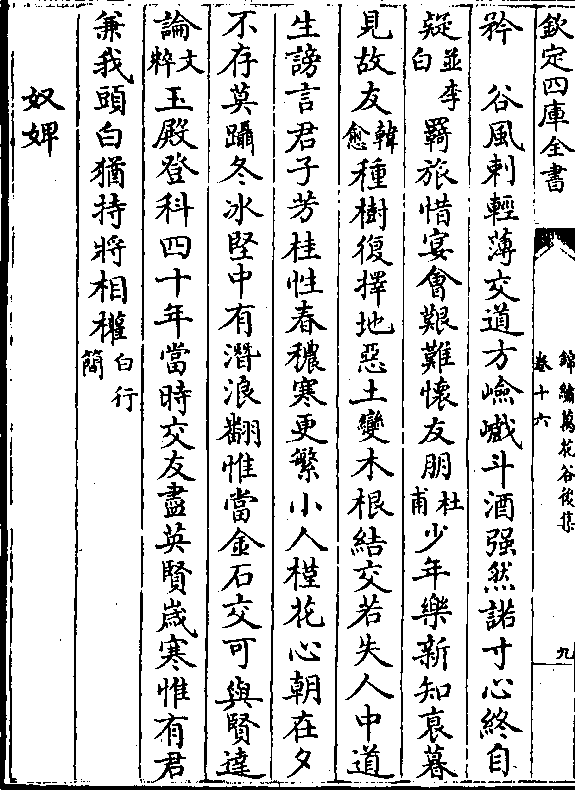 欽定四庫全書
錦繡萬花谷後集
卷十六
九
矜　谷風刺輕薄交道方嶮巇斗酒强然諾寸心終自
疑並李白羇旅惜宴會艱難懷友朋杜甫少年樂新知衰暮
見故友韓愈種樹復擇地惡土變木根結交若失人中道
生謗言君子芳桂性春穠寒更繁小人槿花心朝在夕
不存莫躡冬冰堅中有潛浪翻惟當金石交可與賢達
論文粹玉殿登科四十年當時交友盡英賢歲寒惟有君
兼我頭白猶持將相權白行簡
奴婢